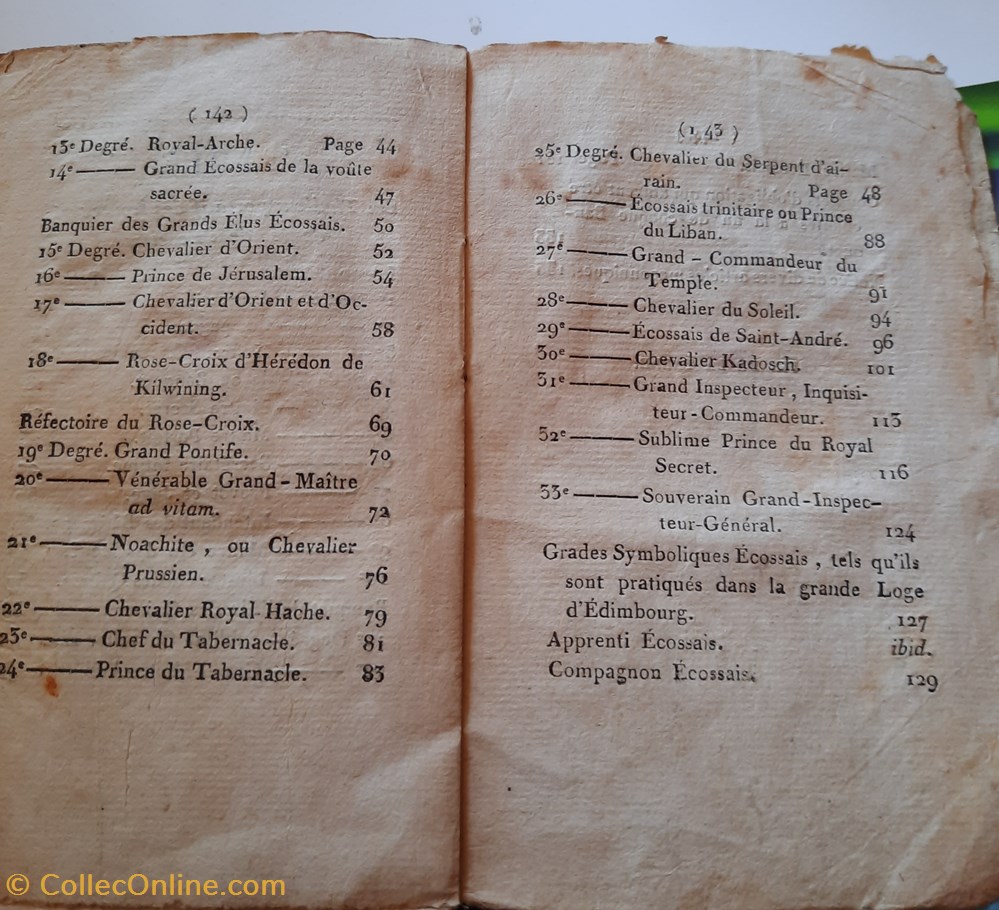 ( 142 )
13e Degré. Royal-Arche. Page 44
14e ——— Grand Écossais de la voûte
sacrée. 47
Banquier des Grands Élus Écossais. 50
15e Degré. Chevalier d'Orient. 52
16e ——— Prince de Jérusalem. 54
17e ——— Chevalier d'Orient et d'Oc-
cident. 58
18e ——— Rose-Croix d'Hérédon de
Kilwining. 61
Réfectoire du Rose-Croix. 69
19e Degré. Grand Pontife. 70
20e ——— Vénérable Grand-Maître
ad vitam. 72
21e ——— Noachite, ou Chevalier
Prussien. 76
22e ——— Chevalier Royal Hache. 79
23e ——— Chef du Tabernacle. 81
24e ——— Prince du Tabernacle. 83
( 143 )
25e Degré. Chevalier du Serpent d'ai-
rain. Page 48
26e ——— Écossais trinitaire ou Prince
du Liban. 88
27e ——— Grand-Commandeur du
Temple. 91
28e ——— Chevalier du Soleil. 94
29e ——— Écossais de Saint-André. 96
30e ——— Chevalier Kadosch. 101
31e ——— Grand Inspecteur, Inquisi-
teur-Commandeur. 113
32e ——— Sublime Prince du Royal
Secret. 116
33e ——— Souverain Grand-Inspec-
teur-Général. 124
Grades Symboliques Écossais, tels qu'ils
sont pratiqués dans la grande Loge
d'Édimbourg. 127
Apprenti Écossais. ibid.
Compagnon Écossais. 129
© CollecOnline.com